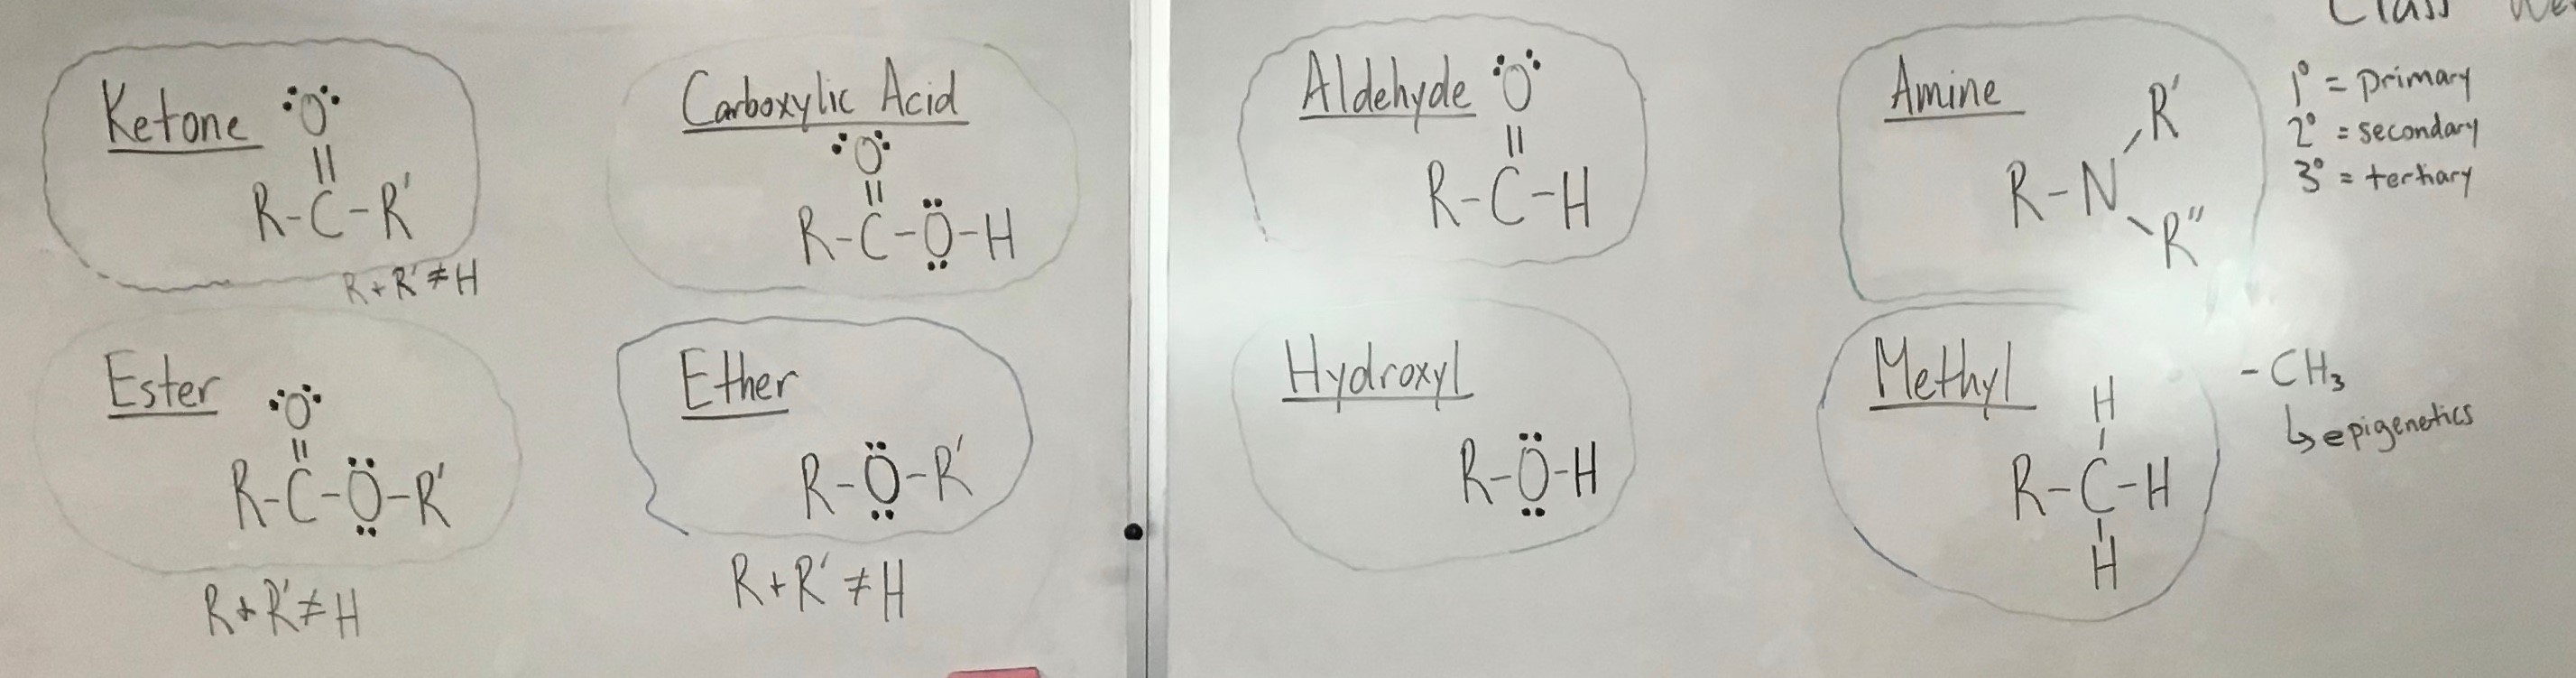 Class
Ketone
:O:
||
R-C-R'
R+R'≠H
Carboxylic Acid
:O:
||
R-C-Ö-H
Aldehyde
:O:
||
R-C-H
Amine
R'
R-N
R"
1° = primary
2° = secondary
3° = tertiary
Ester
:O:
||
R-C-Ö-R'
R+R'≠H
Ether
R-Ö-R'
R+R'≠H
Hydroxyl
R-Ö-H
Methyl
H
R-C-H
H
-CH₃
↳epigenetics